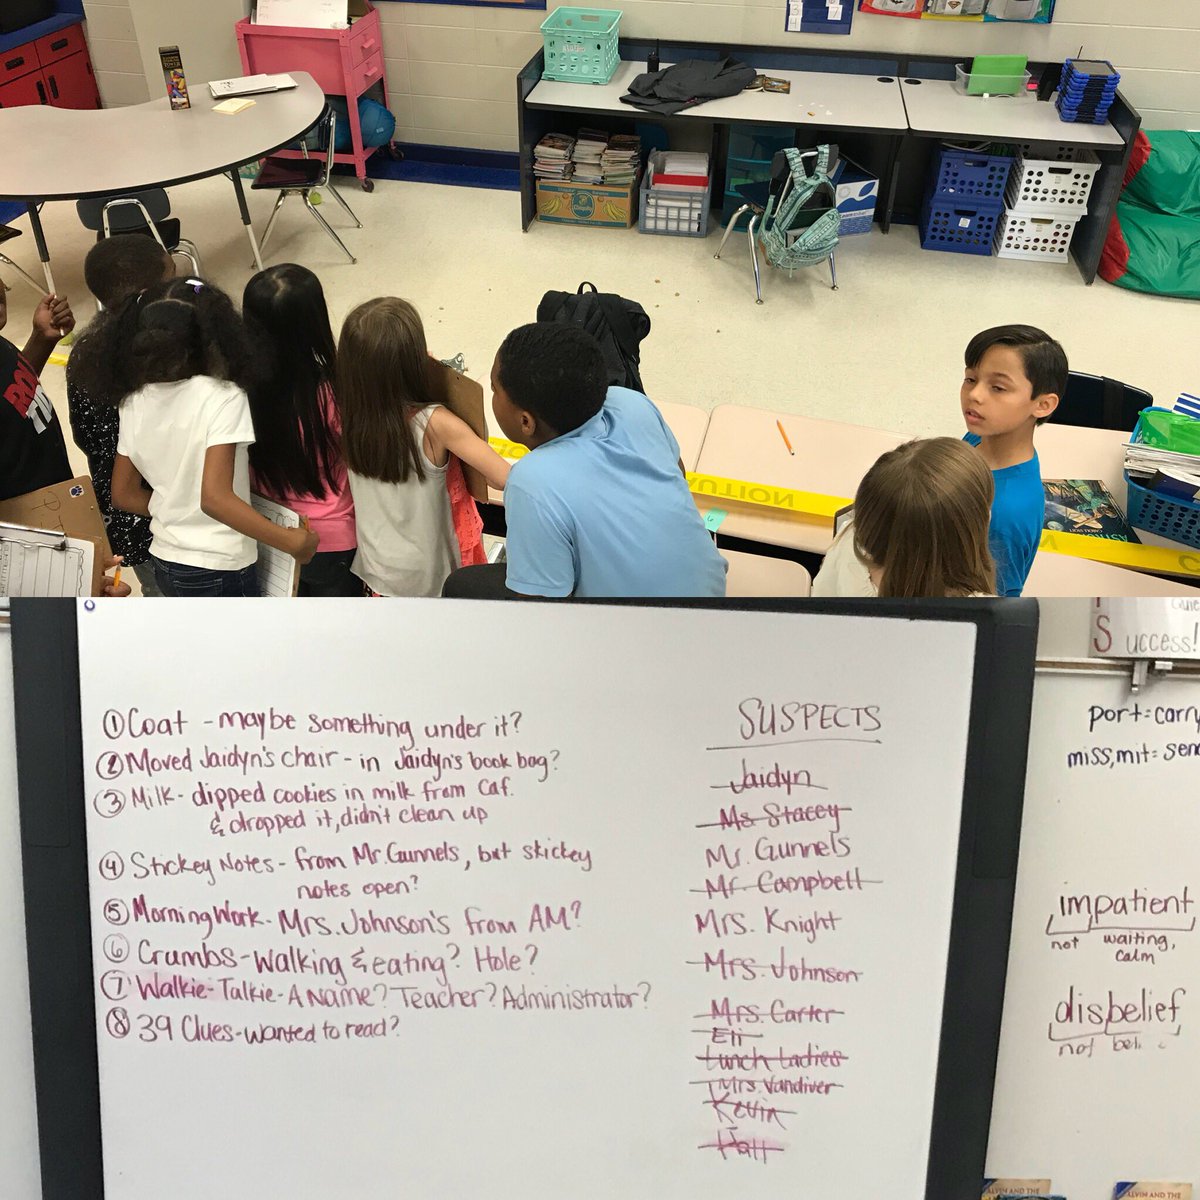 CAUTION
① Coat - maybe something under it?
② Moved Jaidyn's chair - in Jaidyn's book bag?
③ Milk - dipped cookies in milk from Caf.
& dropped it, didn't clean up
④ Stickey Notes - from Mr. Gunnels, but stickey
notes open?
⑤ Morning Work - Mrs. Johnson's from AM?
⑥ Crumbs - Walking & eating? Hole?
⑦ Walkie-Talkie - A Name? Teacher? Administrator?
⑧ 39 Clues - wanted to read?
SUSPECTS
Jaidyn
Ms Stacey
Mr. Gunnels
Mr. Campbell
Mrs. Knight
Mrs. Johnson
Mrs. Carter
Eli
Lunch Ladies
Mrs. Vandiver
Kevin
Success!
port = carry
miss, mit = send
impatient
not waiting,
calm
disbelief
not
ALVIN AND THE
ALVIN AND THE